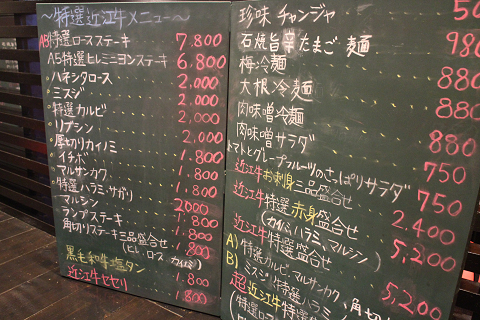 ～特選近江牛メニュー～
A5特選ロースステーキ 7,800
A5特選ヒレミニヨンステーキ 6,800
・ハネシタロース 2,000
・ミスジ 2,000
・特選カルビ 2,000
・リブシン 2,000
・厚切りカイノミ 2,000
・イチボ 1,800
・マルサンカク 1,800
・特選ハラミ、サガリ 1,800
マルシン 2000
ランプステーキ 1,800
角切りステーキ三品盛合せ 1,800
(ヒレ、ロス、カイノミ)
黒毛和牛塩タン 1,800
近江牛セセリ 1,800
珍味 チャンジャ 50
石焼旨辛たまご麺 980
梅冷麺 880
大根冷麺 880
肉味噌冷麺 880
肉味噌サラダ 880
トマトとグレープフルーツのさっぱりサラダ 750
近江牛お刺身三品盛合せ 750
近江牛特選赤身盛合せ 2,400
(カイノミ、ハラミ、マルシン)
近江牛特選盛合せ 5,200
A) 特選カルビ、マルサンカク、
B) ミスジ、特選ハラミ、角切 5,200
超近江牛特選
(特選ロー